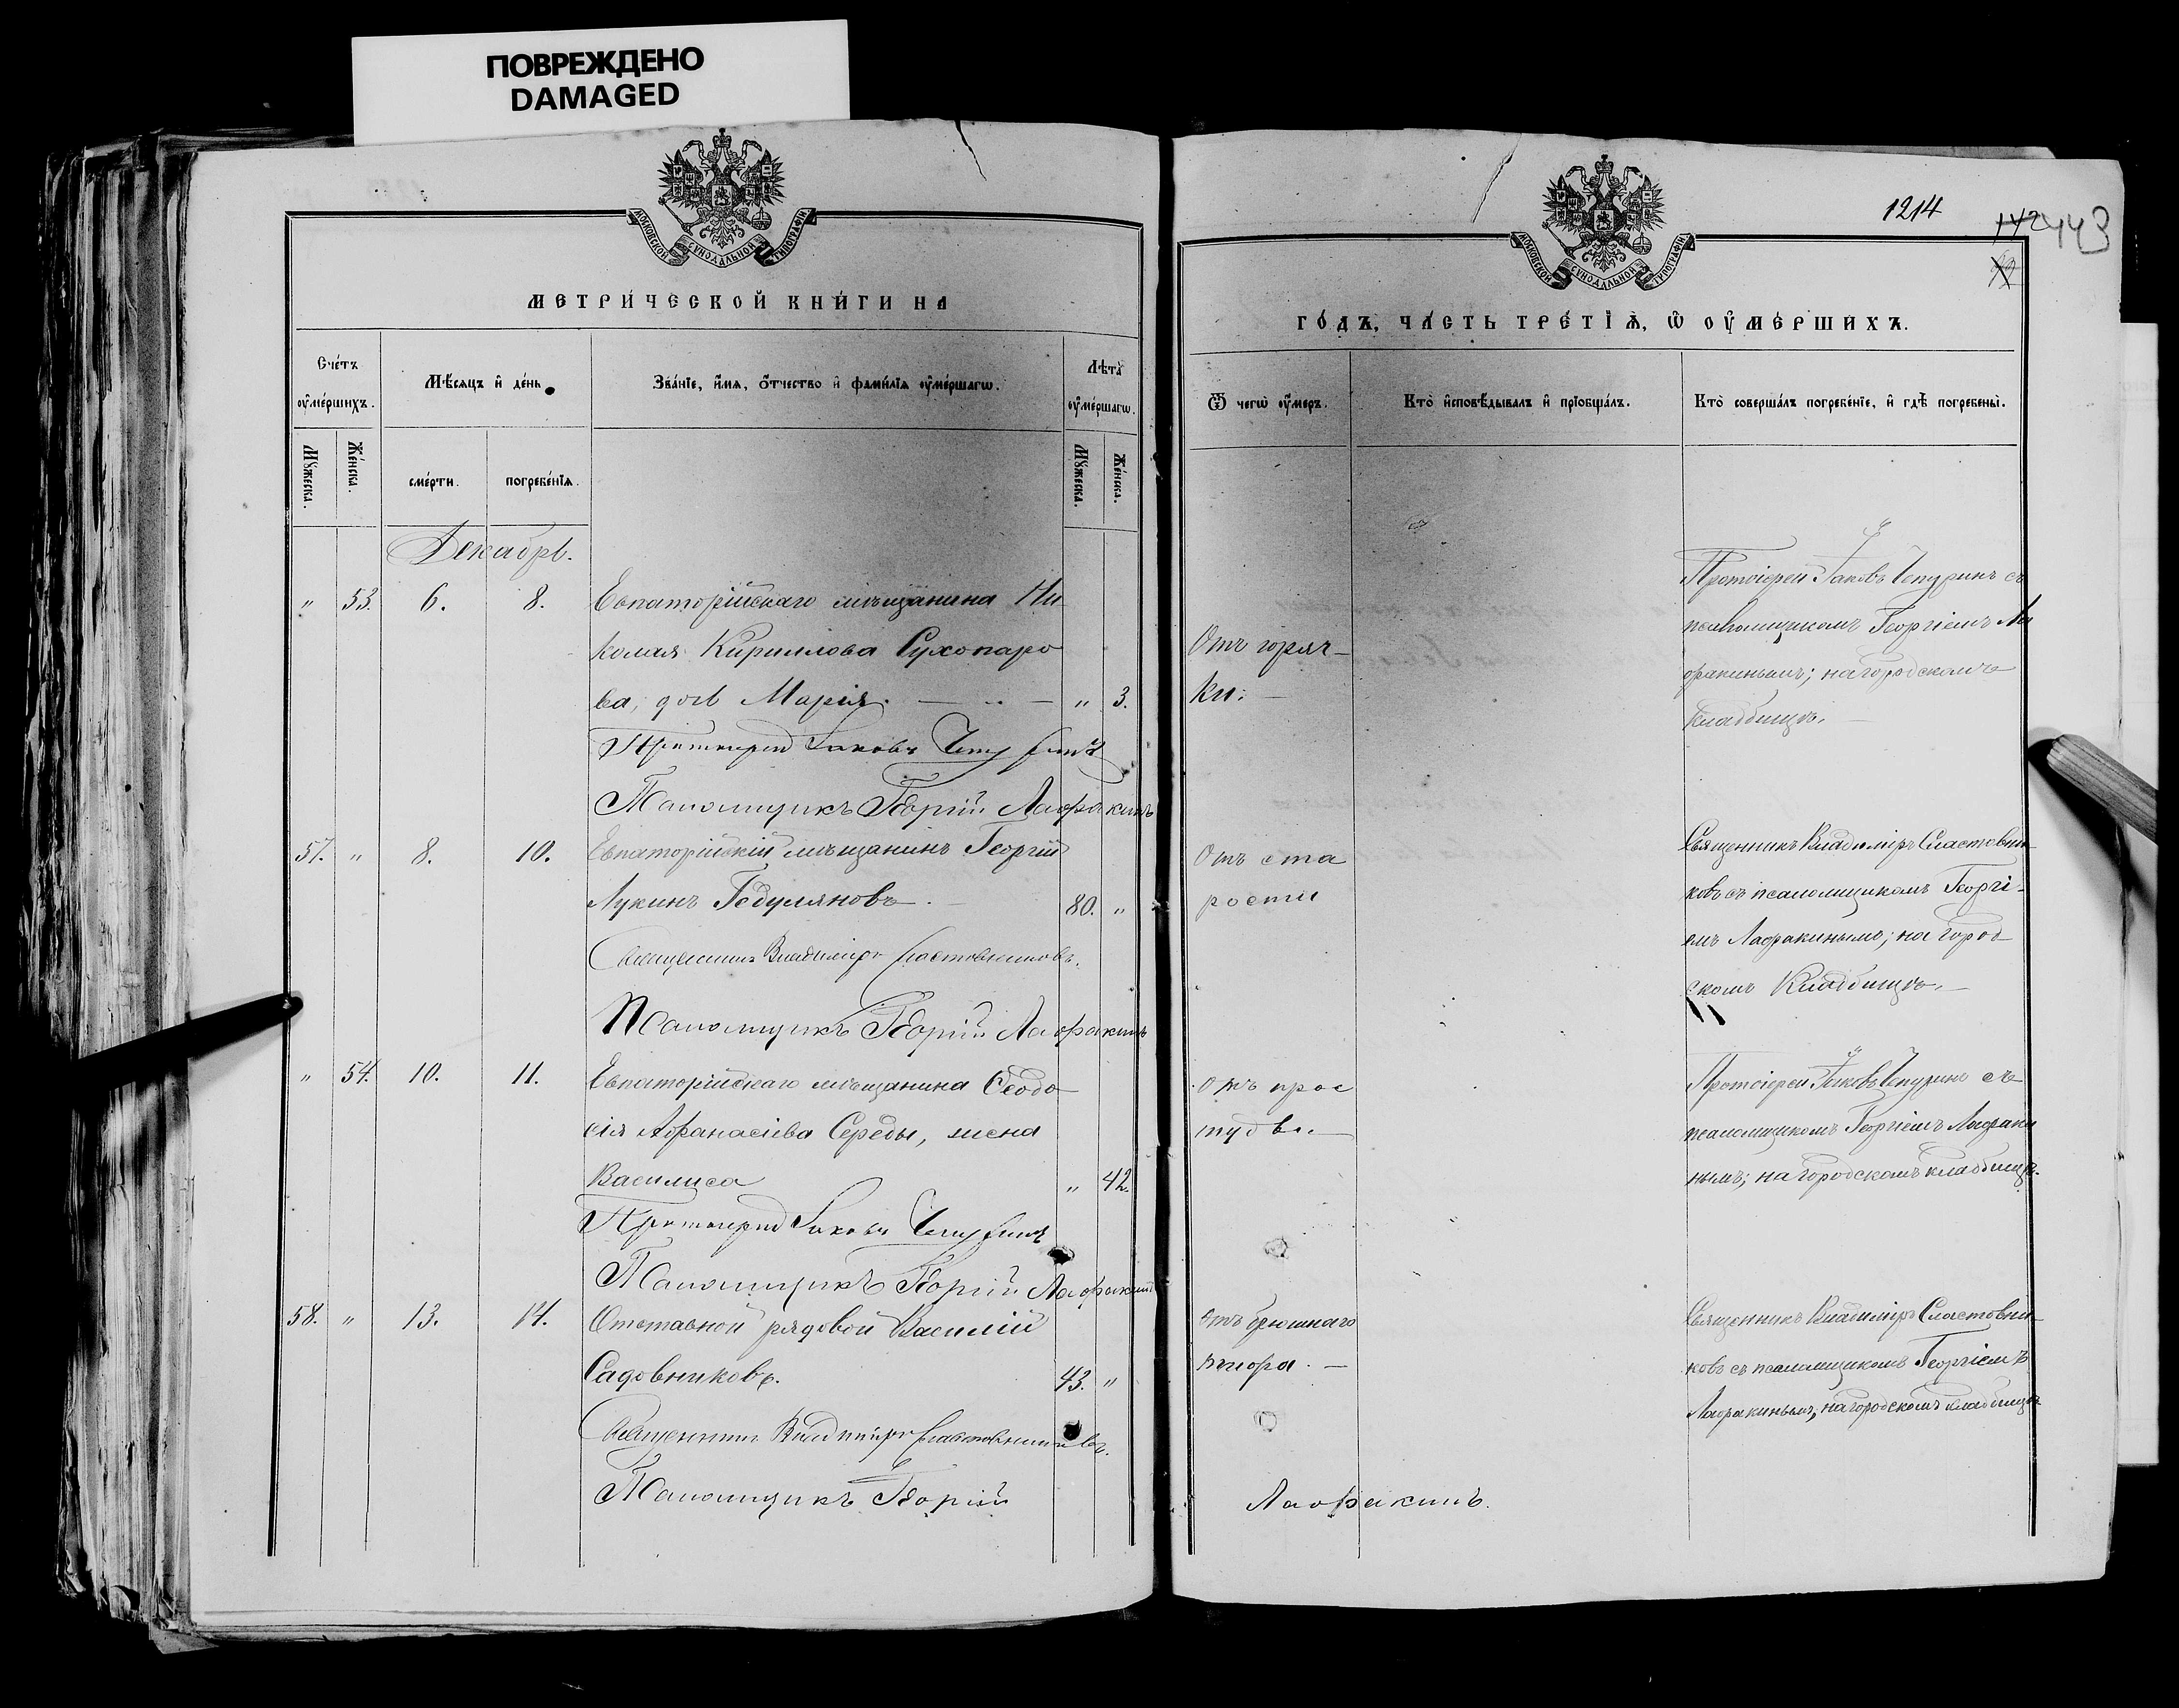 ПОВРЕЖДЕНО
DAMAGED
МОСКОВСКОЙ СѴНОДАЛЬНОЙ ТИПОГРАФІИ
МЕТРИ́ЧЕСКОЙ КНИ́ГИ НА
Счéтъ
ᲂу҆мéршихъ.
Мѣ́сяцъ и҆ дéнь
Звáнїе, и҆́мя, ѻ҆́тчество и҆ фами́лїя ᲂу҆мéршагѡ.
Лѣ́та
ᲂу҆мéршагѡ.
Мꙋ́жеска.
Жéнска.
смéрти.
погребéнїѧ.
Мꙋ́жеска.
Жéнска.
Декабрь.
" 53. 6. 8. Евпаторійскаго мѣщанина Ни
колая Кириллова Сухопаро
ва, дочь Марія. — " 3.
Протоіерей Іаковъ Чепуринъ
Псаломщикъ Георгій Лафракинъ
57. " 8. 10. Евпаторійскій мѣщанинъ Георгій
Лукинъ Гедуляновъ. 80. "
Священникъ Владиміръ Сластовниковъ.
Псаломщикъ Георгій Лафракинъ
" 54. 10. 11. Евпаторійскаго мѣщанина Ѳеодо
сія Афанасіева Середы, жена
Василиса " 42.
Протоіерей Іаковъ Чепуринъ
Псаломщикъ Георгій Лафракинъ
58. " 13. 14. Отставной рядовой Василій
Садовниковъ. 43. "
Священникъ Владиміръ Сластовниковъ.
Псаломщикъ Георгій
1214
142 443
МОСКОВСКОЙ СѴНОДАЛЬНОЙ ТИПОГРАФІИ
ГО́ДЪ, ЧА́СТЬ ТРЕ́ТЇѦ, Ѡ҆ ОУ҆МЕ́РШИХЪ.
Ѿ чегѡ̀ ᲂу҆́меръ.
Ктò и҆сповѣ́дывалъ и҆ прїѻбщáлъ.
Ктò совершáлъ погребéнїе, и҆ гдѣ̀ погребены̀.
Отъ горяч-
ки. —
Протоіерей Іаковъ Чепуринъ съ
псаломщикомъ Георгіемъ Ла
фракинымъ; на городскомъ
кладбищѣ. —
Отъ ста
рости
Священникъ Владиміръ Сластовни-
ковъ съ псаломщикомъ Георгі-
емъ Лафракинымъ; на город-
скомъ кладбищѣ. —
Отъ прос
туды. —
Протоіерей Іаковъ Чепуринъ съ
псаломщикомъ Георгіемъ Лафраки
нымъ; на городскомъ кладбищѣ.
Отъ брюшнаго
тифа. —
Священникъ Владиміръ Сластовни-
ковъ съ псаломщикомъ Георгіемъ
Лафракинымъ, на городскомъ кладбищѣ
Лафракинъ.